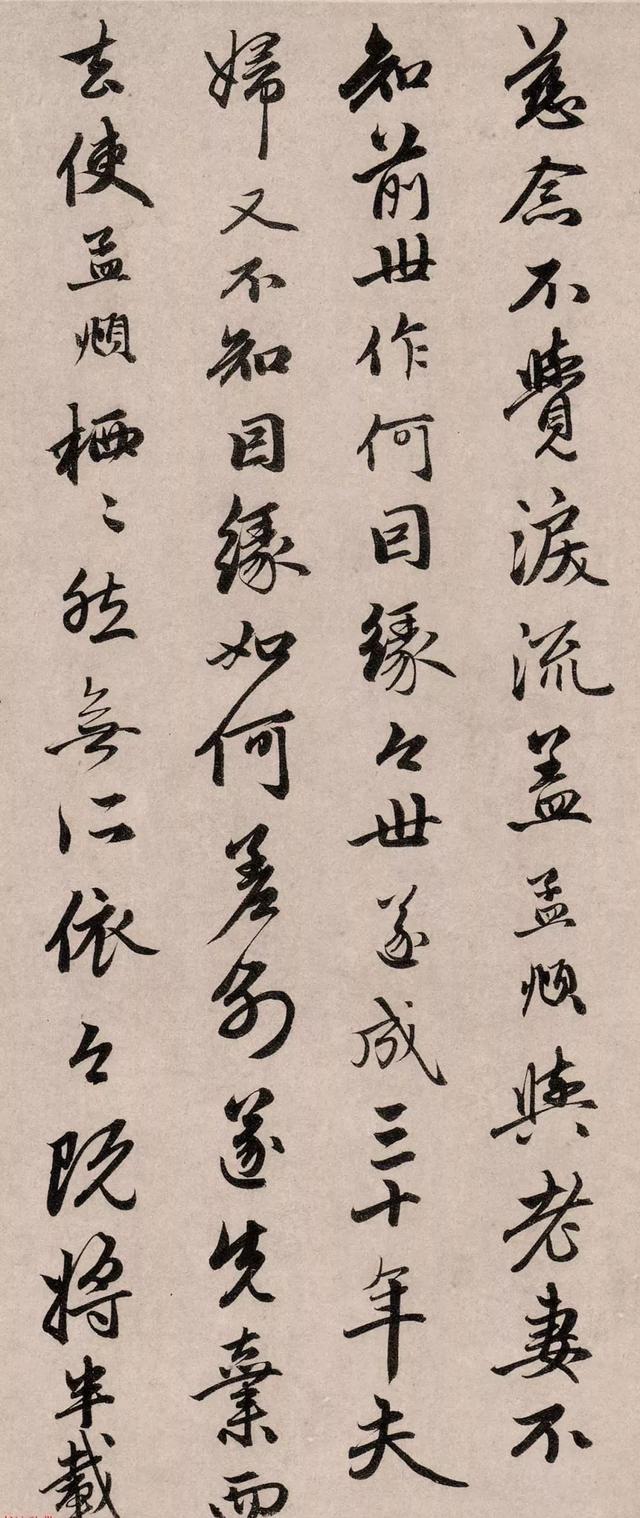 慈念不覺淚流盖孟頫與老妻不
知前世作何因緣今世遂成三十年夫
婦又不知因緣如何差别遂先棄而
去使孟頫栖々然無所依今既將半載